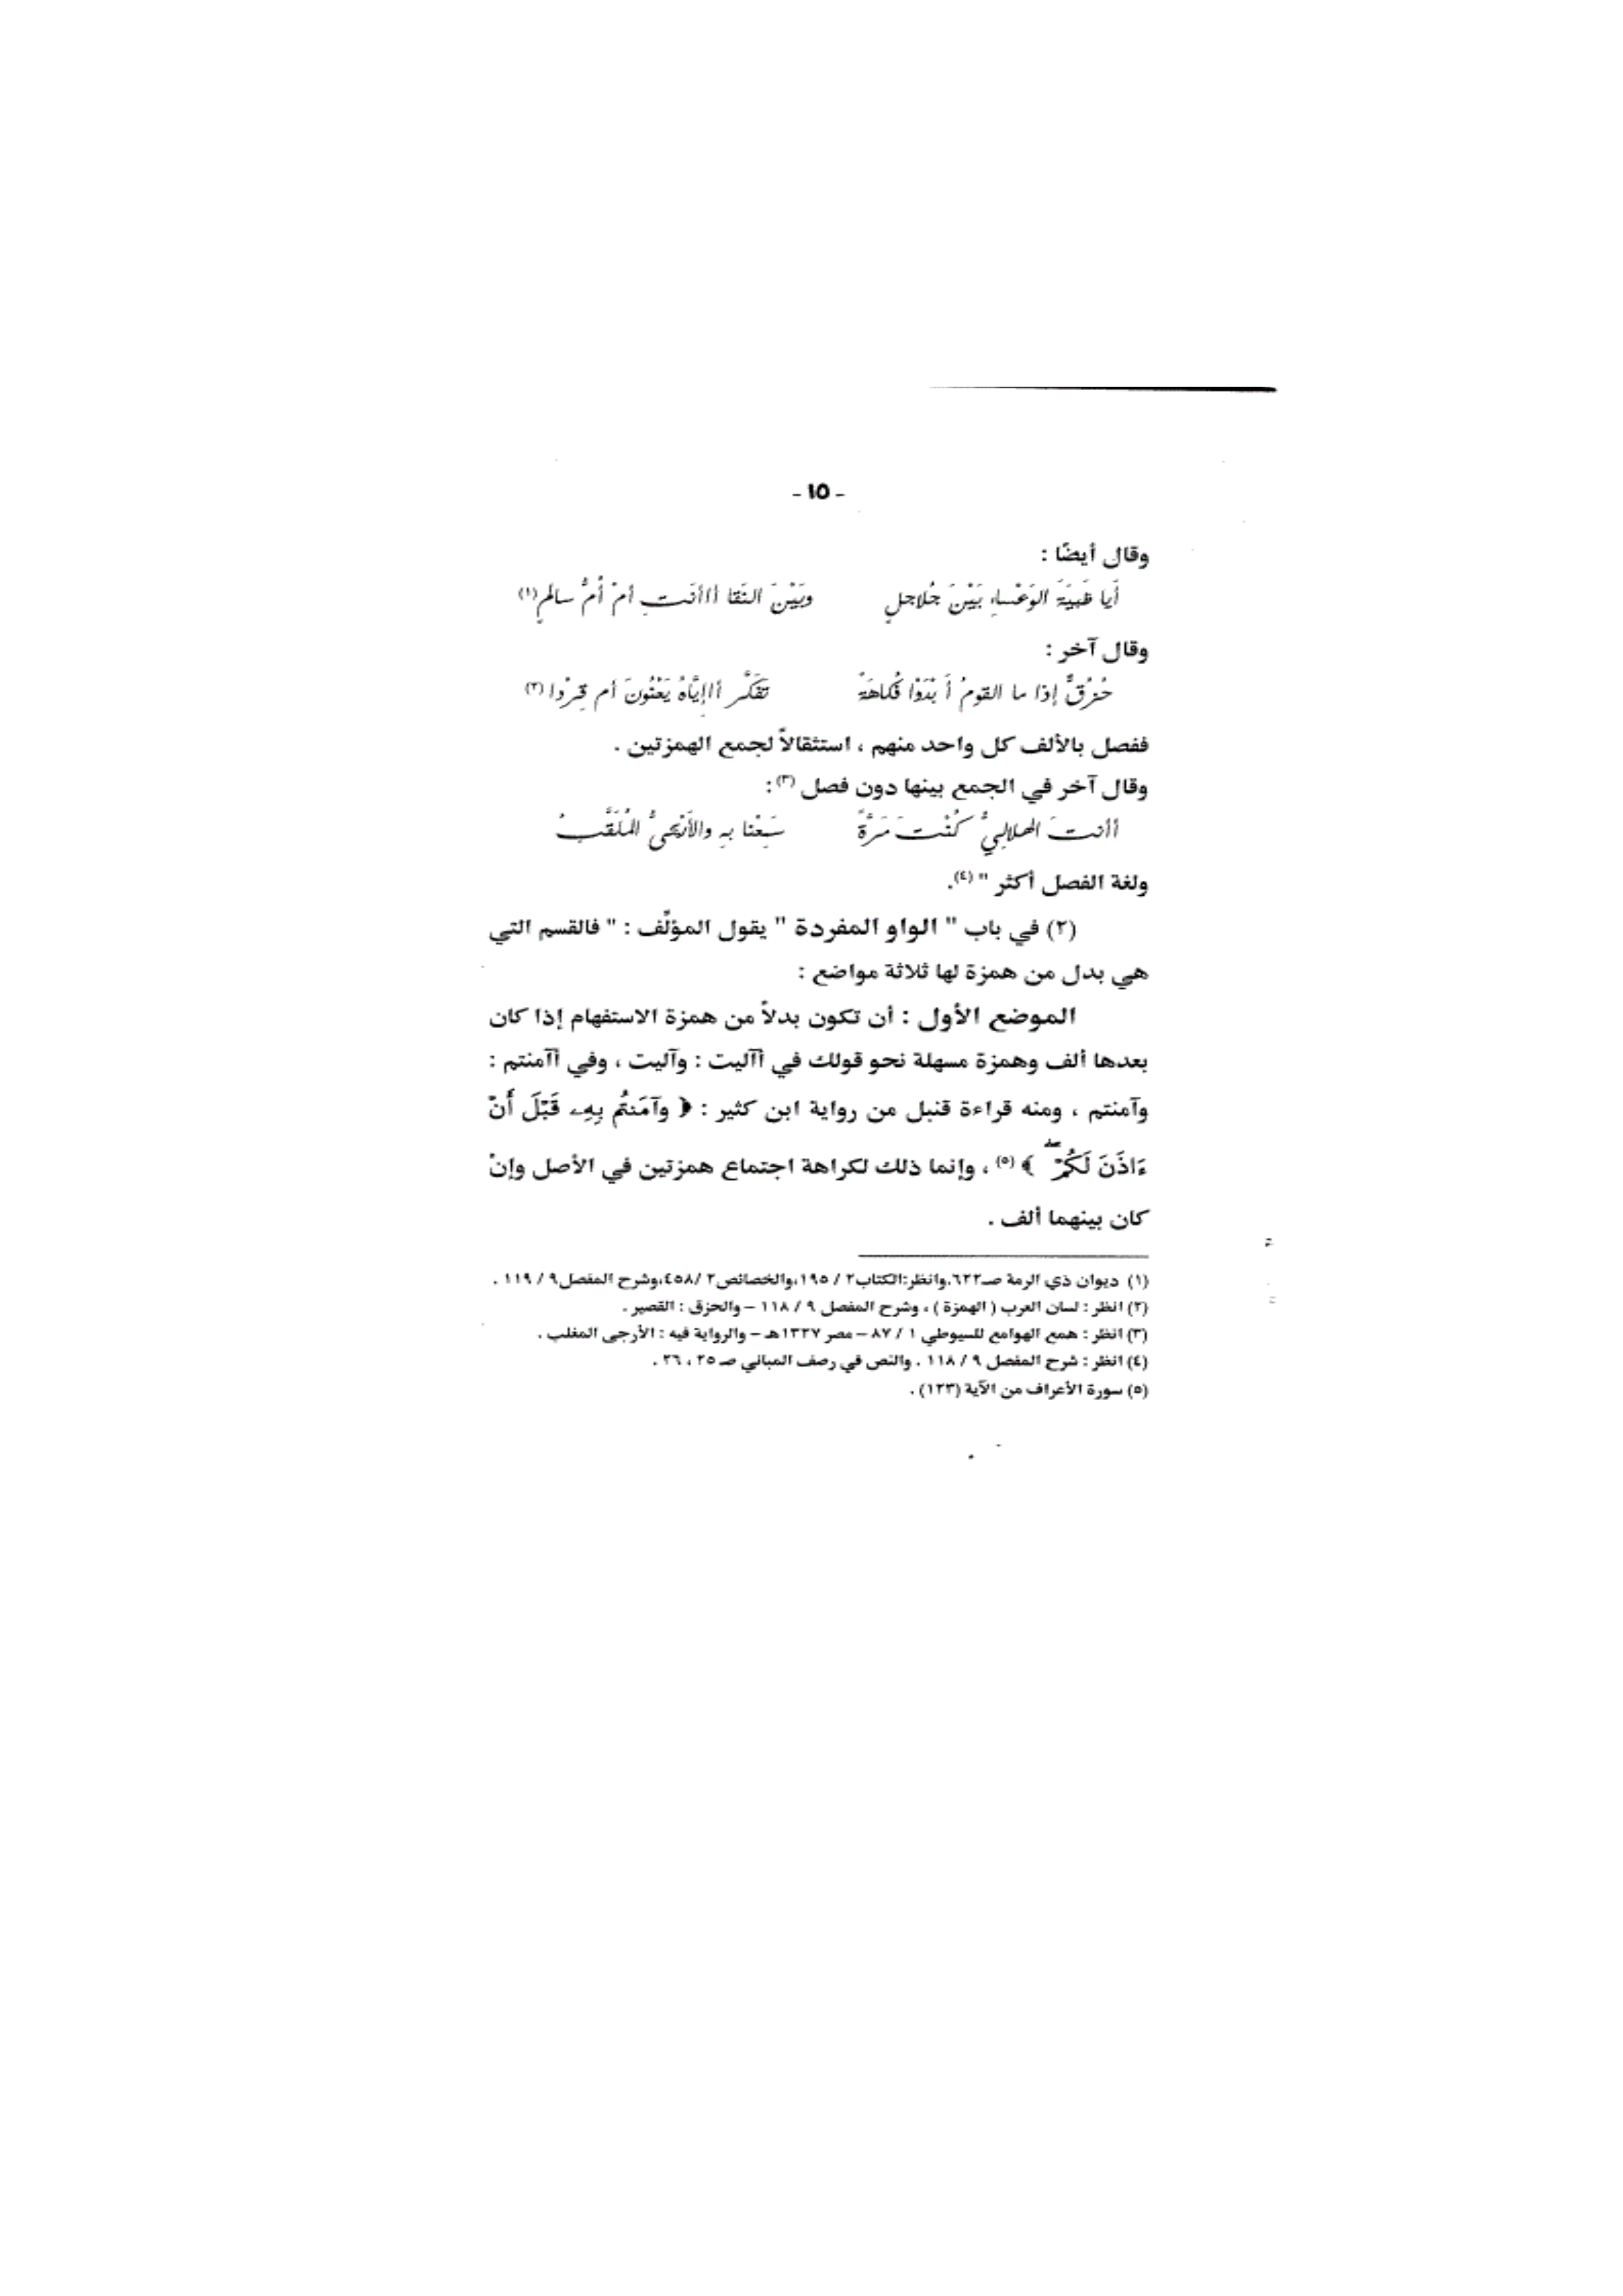 - ١٥ -
وقال أيضًا :
أَيا ظَبيَةَ الوَعْساءِ بَيْنَ جُلاجلٍ وبَيْنَ النَقا أاأنتِ أمْ أُمُّ سالمِ(١)
وقال آخر :
حُزُقٌّ إذا ما القومُ أَبْدَوْا فُكاهَةً تَفَكَّر أاإيَّاهُ يَعْنُونَ أم قِرْدا(٢)
ففصل بالألف كل واحد منهم ، استثقالاً لجمع الهمزتين .
وقال آخر في الجمع بينها دون فصل (٣):
أأنتَ الهلاليُّ كُنْتَ مَرَّةً سَمِعْنا بهِ والأَرْيَحيُّ المُلَقَّبُ
ولغة الفصل أكثر " (٤).
(٢) في باب " الواو المفردة " يقول المؤلِّف : " فالقسم التي
هي بدل من همزة لها ثلاثة مواضع :
الموضع الأول : أن تكون بدلاً من همزة الاستفهام إذا كان
بعدها ألف وهمزة مسهلة نحو قولك في أآليت : وآليت ، وفي أآمنتم :
وآمنتم ، ومنه قراءة قنبل من رواية ابن كثير : ﴿ وآمَنتُم بِهِۦ قَبْلَ أَنْ
ءَاذَنَ لَكُمْۖ ﴾ (٥) ، وإنما ذلك لكراهة اجتماع همزتين في الأصل وإنْ
كان بينهما ألف .
(١) ديوان ذي الرمة صـ٦٢٢.وانظر:الكتاب٢ / ١٩٥،والخصائص٢ /٤٥٨،وشرح المفصل٩ / ١١٩ .
(٢) انظر : لسان العرب ( الهمزة ) ، وشرح المفصل ٩ / ١١٨ – والحزق : القصير .
(٣) انظر : همع الهوامع للسيوطي ١ / ٨٧ – مصر ١٣٢٧هـ – والرواية فيه : الأرجى المغلب .
(٤) انظر : شرح المفصل ٩ / ١١٨ . والنص في رصف المباني صـ ٢٥ ، ٢٦ .
(٥) سورة الأعراف من الآية (١٢٣) .